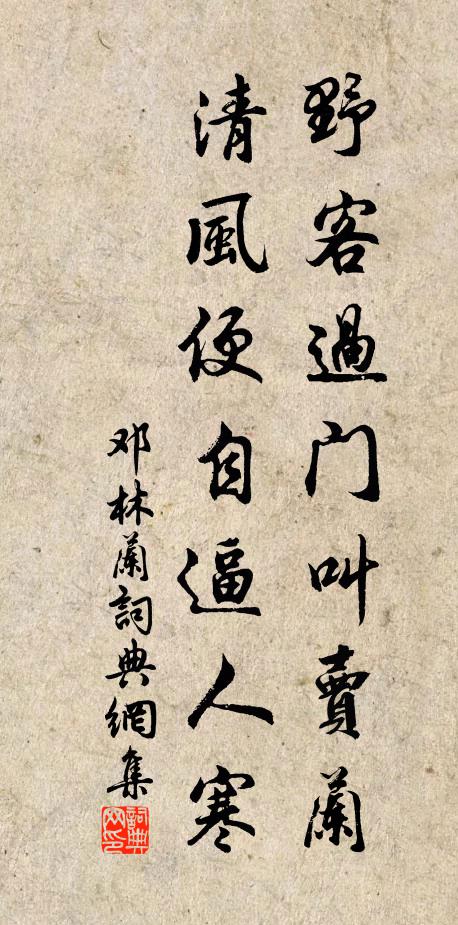 野客過門叫賣蘭
清風便自逼人寒
邓林蘭詞典網集
詞典網印